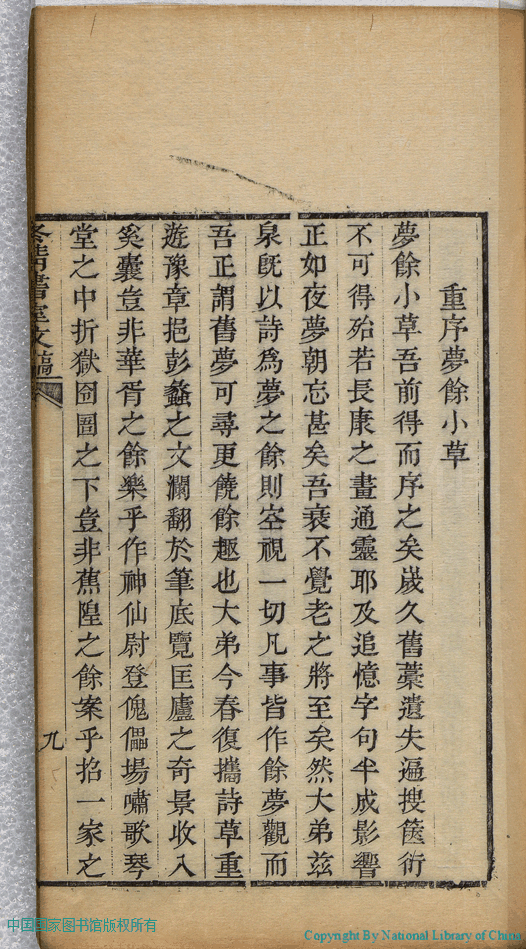 重序夢餘小草
夢餘小草吾前得而序之矣歲久舊藁遺失遍搜篋衍
不可得殆若長康之畫通靈耶及追憶字句半成影響
正如夜夢朝忘甚矣吾衰不覺老之將至矣然大弟茲
泉旣以詩爲夢之餘則空視一切凡事皆作餘夢觀而
吾正謂舊夢可尋更饒餘趣也大弟今春復攜詩草重
遊豫章挹彭蠡之文瀾翻於筆底覽匡廬之奇景收入
奚囊豈非華胥之餘樂乎作神仙尉登傀儡場嘯歌琴
堂之中折獄囹圄之下豈非蕉隍之餘案乎掐一家之
書室文稿
九
中国国家图书馆版权所有
Copyright By National Library of China